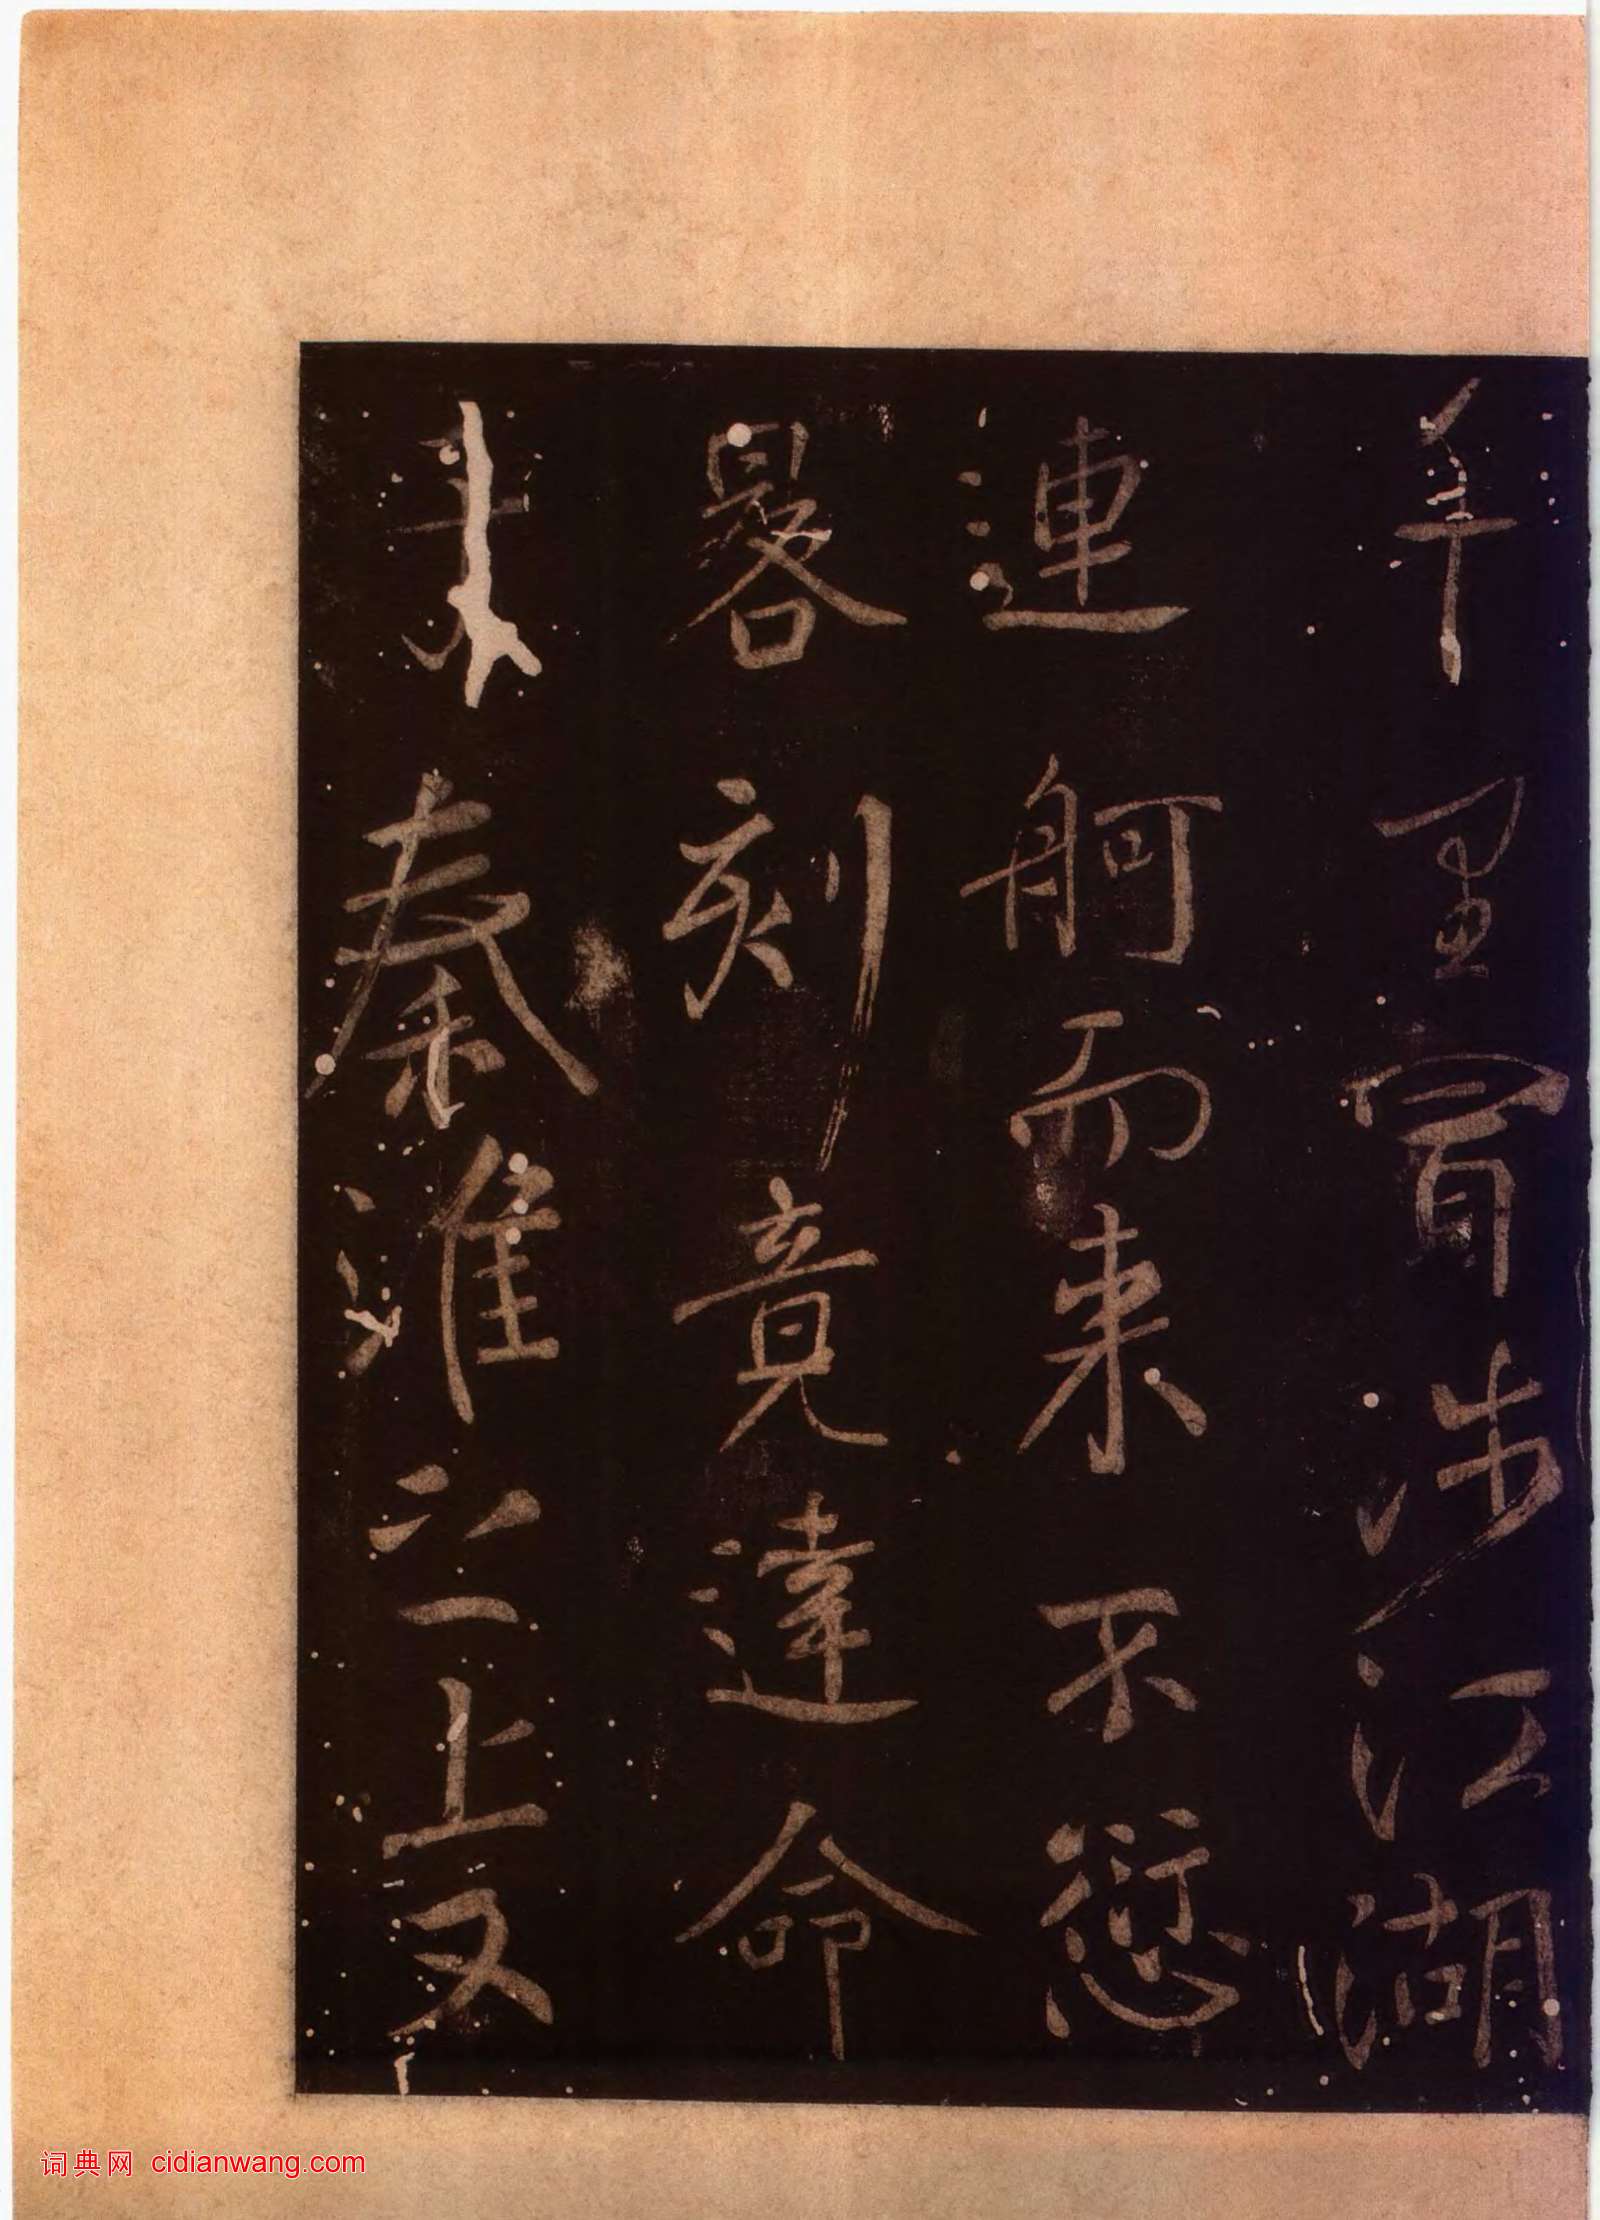 千里冒涉江湖
連舸而來不愆
晷刻竟達命
秦淮之上又
词典网 cidianwang.com